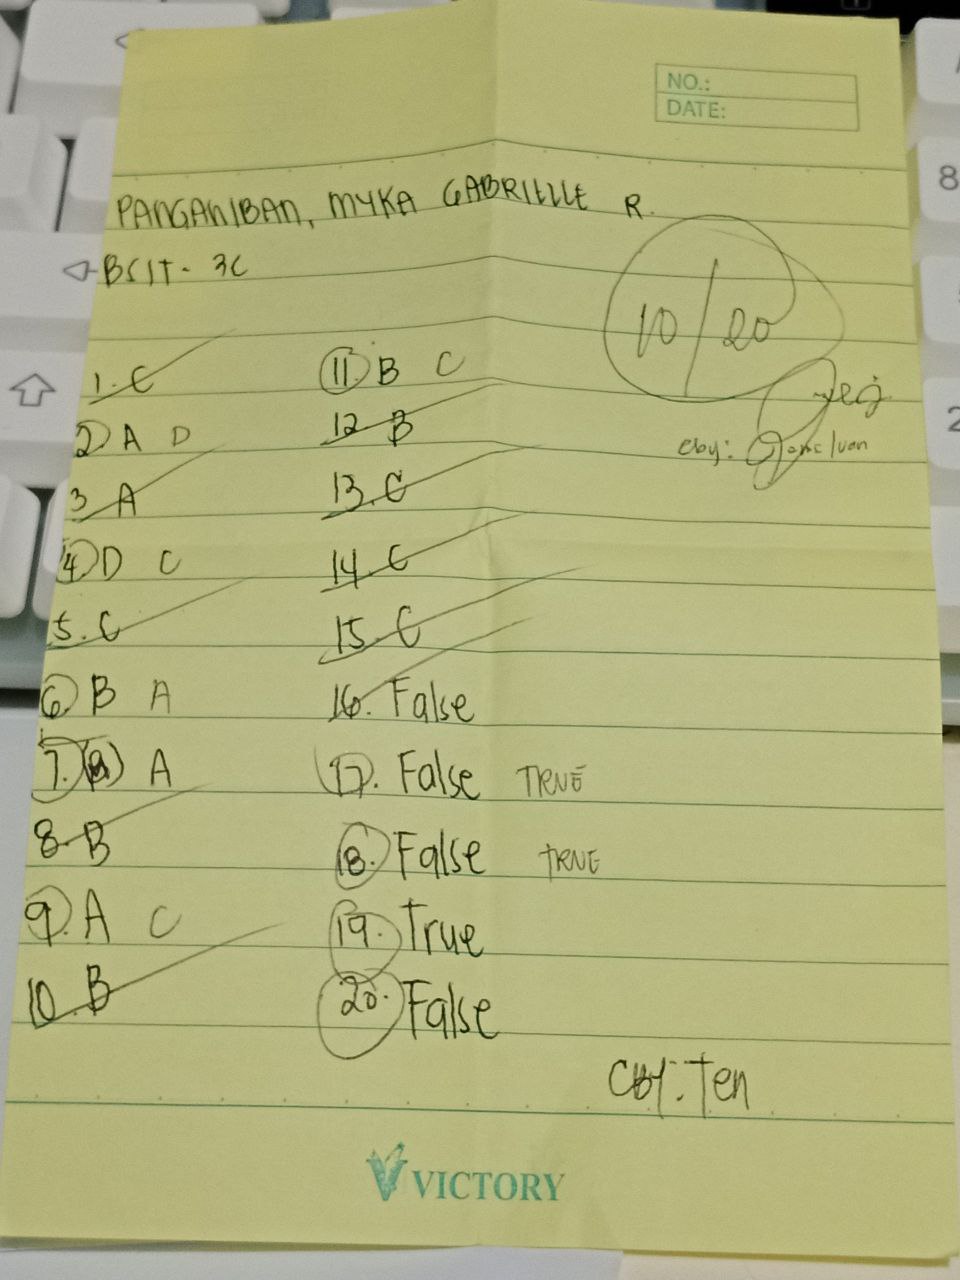 NO.:
DATE:
PANGANIBAN, MYKA GABRIELLE R.
BSIT - 3C
10/20
1. C
2 A D
3 A
4 D C
5. C
6 B A
7. A
8 B
9. A C
10. B
11 B C
12 B
13. C
14 C
15. C
16. False
17. False TRUE
18. False TRUE
19. True
20. False
cby:
CBY: Ten
VICTORY